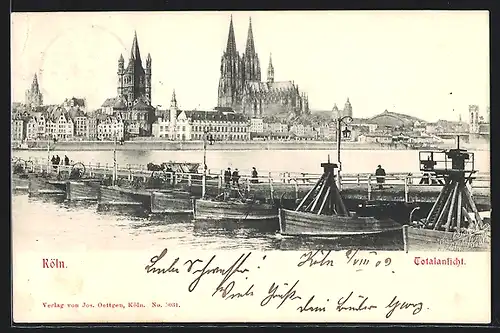 Köln.
Totalansicht.
Lieber Schwan! Köln 9/VIII 09
Viele Grüße dein Bruder Georg.
Verlag von Jos. Oettgen, Köln. No. 5031.